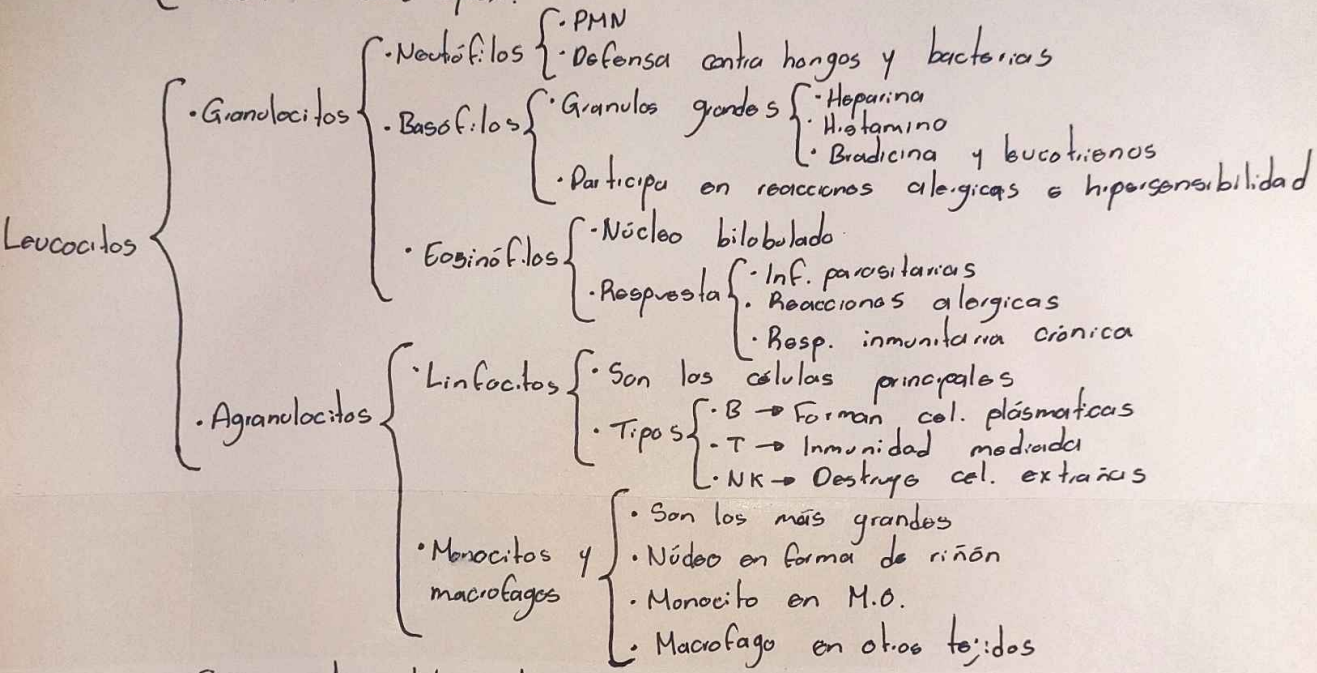 · Neutrófilos
· PMN
· Defensa contra hongos y bacterias
· Granulocitos
· Basófilos
· Granulos grandes
· Heparina
· Histamina
· Bradicina y leucotrienos
· Participa en reacciones alergicas e hipersensibilidad
Leucocitos
· Eosinófilos
· Núcleo bilobulado
· Respuesta
· Inf. parasitarias
· Reacciones alergicas
· Resp. inmunitaria crónica
· Agranulocitos
· Linfocitos
· Son las células principales
· Tipos
· B → Forman cel. plásmaticas
· T → Inmunidad mediada
· NK → Destruye cel. extrañas
· Monocitos y
macrofagos
· Son los más grandes
· Núcleo en forma de riñón
· Monocito en M.O.
· Macrofago en otros tejidos